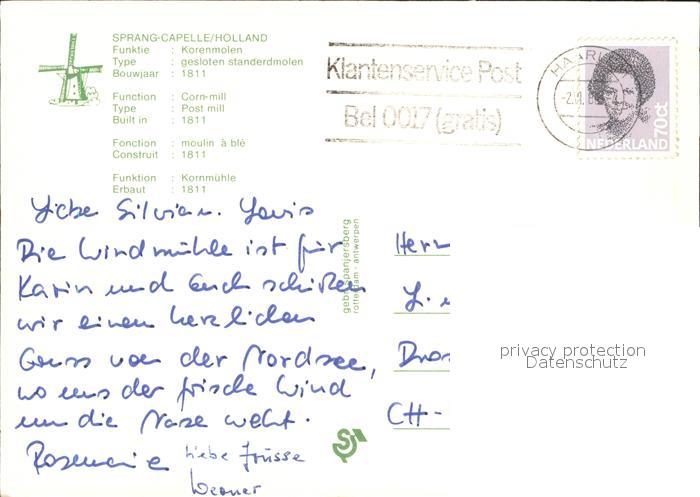 SPRANG-CAPELLE/HOLLAND
Funktie : Korenmolen
Type : gesloten standerdmolen
Bouwjaar : 1811
Function : Corn-mill
Type : Post mill
Built in : 1811
Fonction : moulin à blé
Construit : 1811
Funktion : Kornmühle
Erbaut : 1811
Klantenservice Post
Bel 0017 (gratis)
HAARL
70ct
NEDERLAND
Liebe Silvia u. Louis
Die Windmühle ist für
Karin und Euch schicken
wir einen herzlichen
Gruss von der Nordsee,
wo uns der frische Wind
um die Nase weht.
Rosemarie Liebe Grüsse
Werner
gebr. spanjersberg
rotterdam - antwerpen
Herr
L.
CH-
privacy protection
Datenschutz